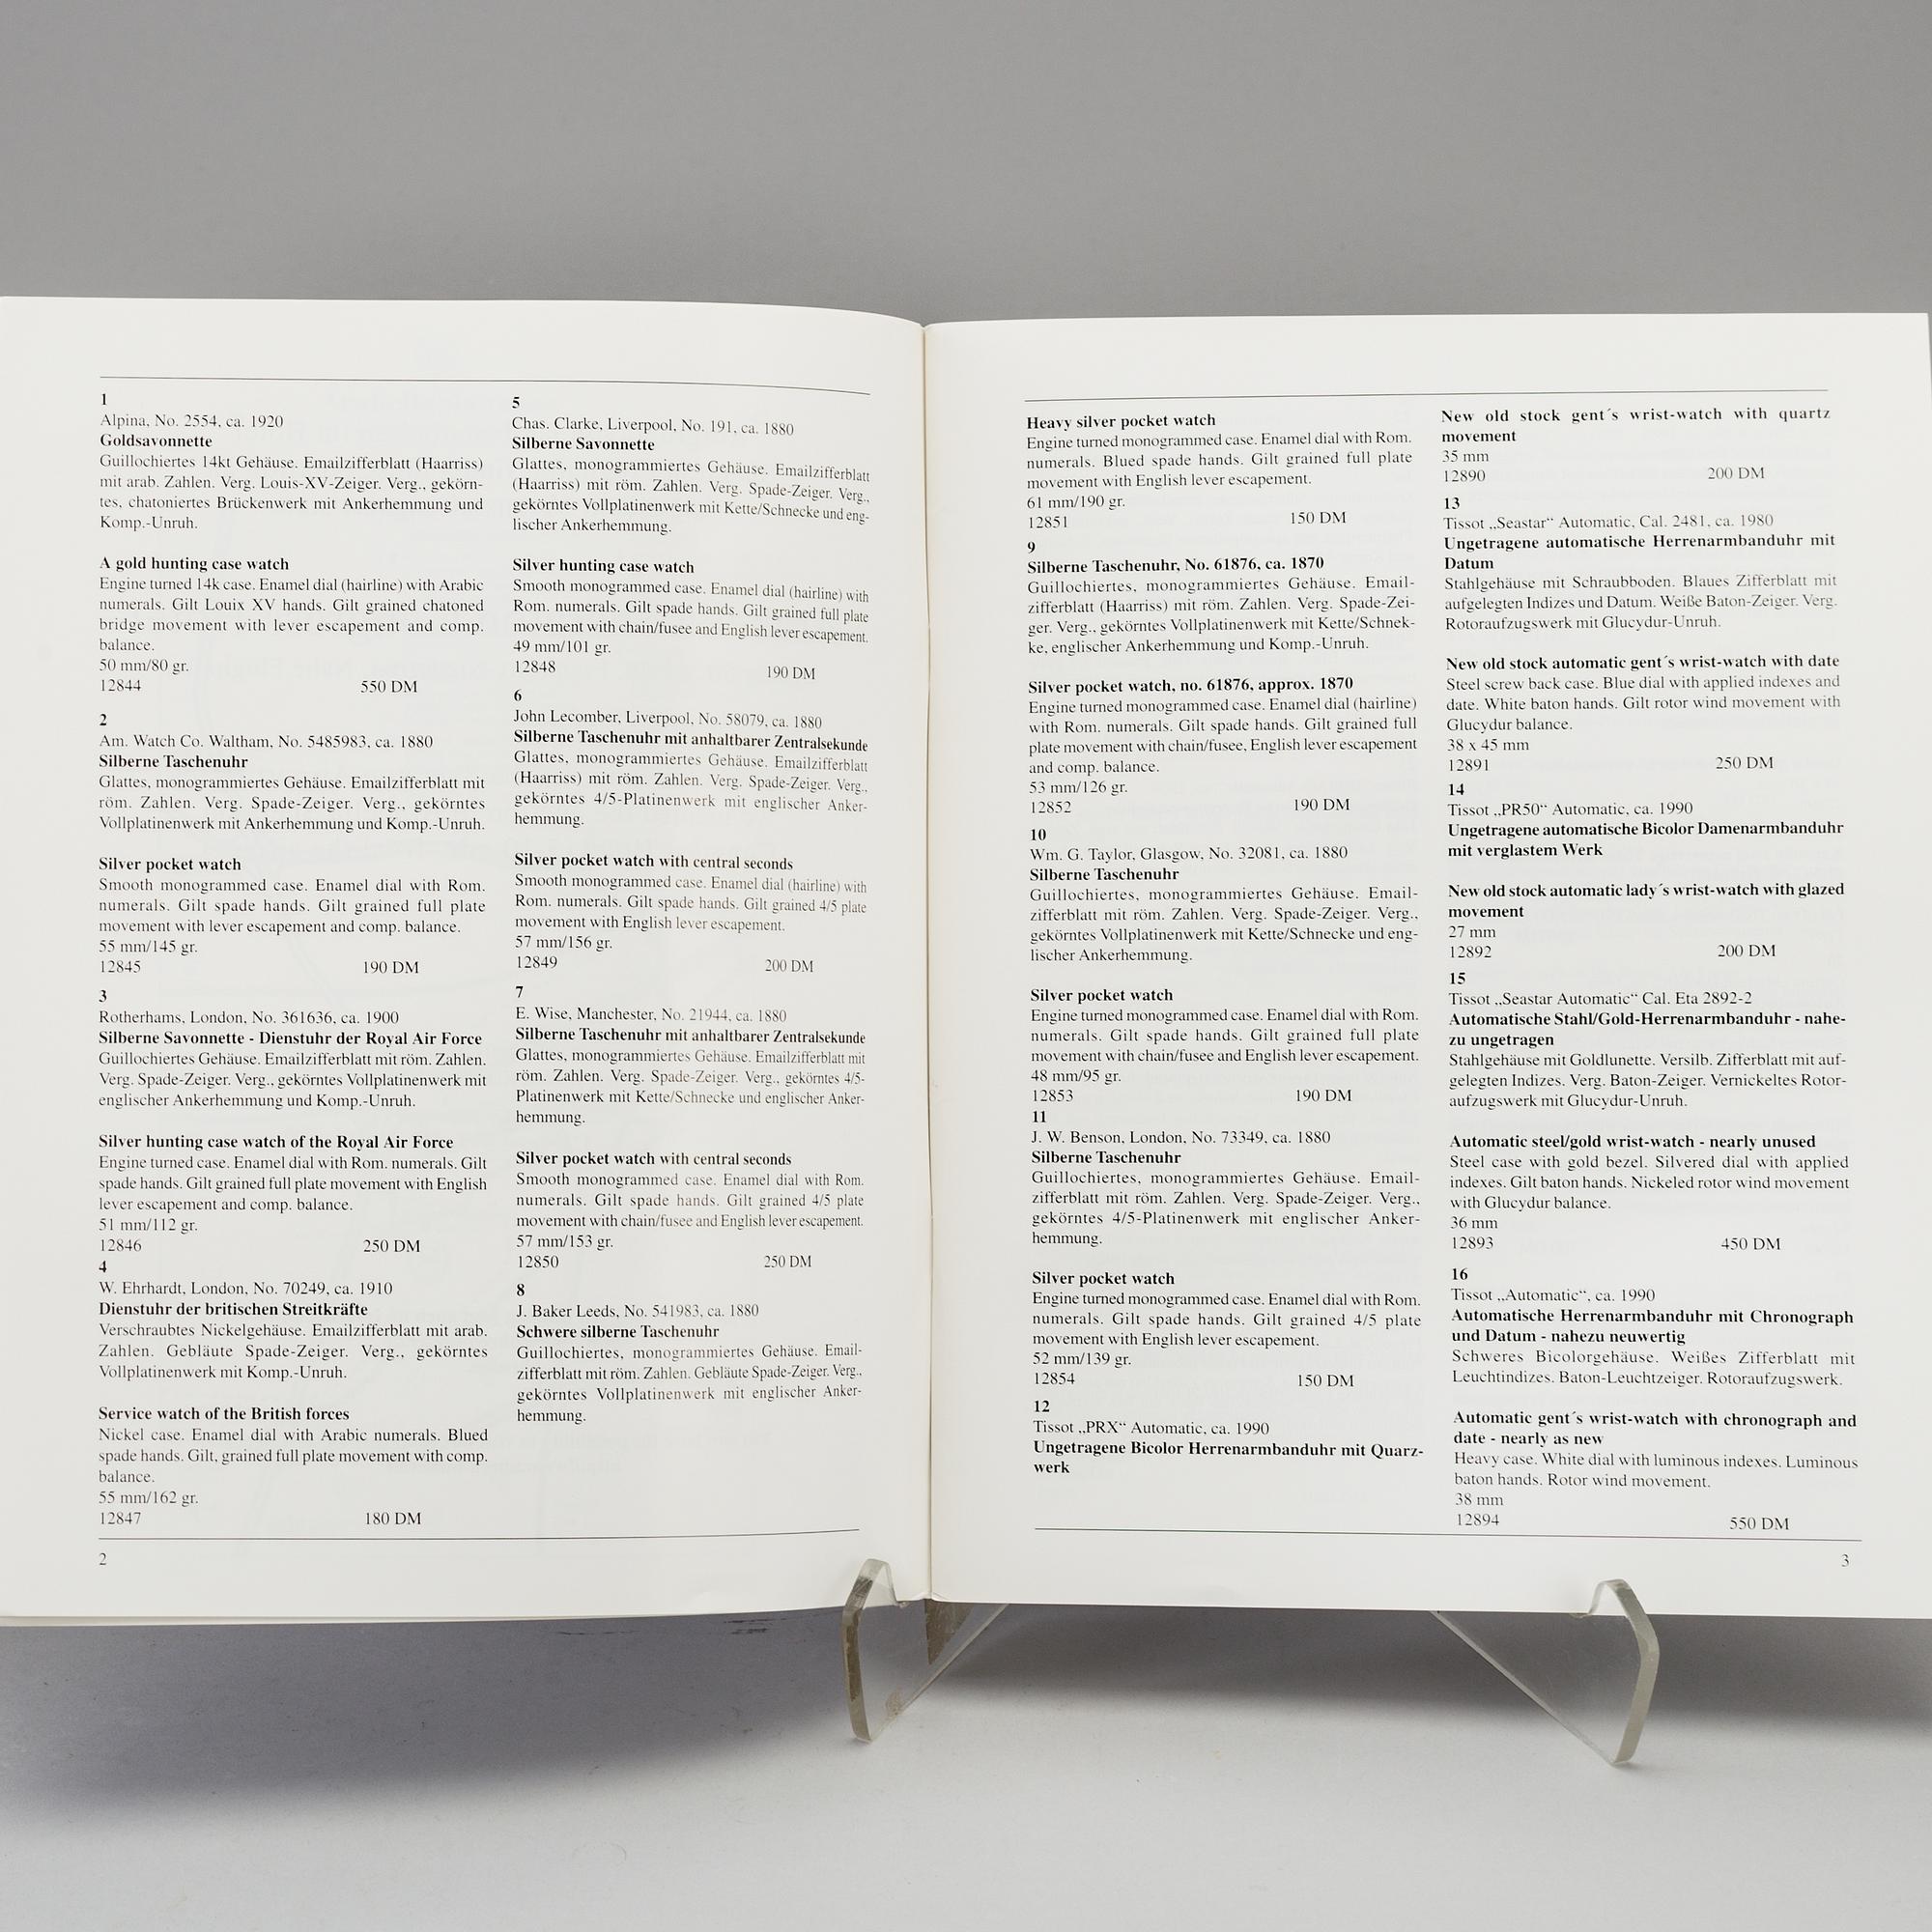 1
Alpina, No. 2554, ca. 1920
Goldsavonnette
Guillochiertes 14kt Gehäuse. Emailzifferblatt (Haarriss)
mit arab. Zahlen. Verg. Louis-XV-Zeiger. Verg., gekörn-
tes, chatoniertes Brückenwerk mit Ankerhemmung und
Komp.-Unruh.
A gold hunting case watch
Engine turned 14k case. Enamel dial (hairline) with Arabic
numerals. Gilt Louix XV hands. Gilt grained chatoned
bridge movement with lever escapement and comp.
balance.
50 mm/80 gr.
12844 550 DM
2
Am. Watch Co. Waltham, No. 5485983, ca. 1880
Silberne Taschenuhr
Glattes, monogrammiertes Gehäuse. Emailzifferblatt mit
röm. Zahlen. Verg. Spade-Zeiger. Verg., gekörntes
Vollplatinenwerk mit Ankerhemmung und Komp.-Unruh.
Silver pocket watch
Smooth monogrammed case. Enamel dial with Rom.
numerals. Gilt spade hands. Gilt grained full plate
movement with lever escapement and comp. balance.
55 mm/145 gr.
12845 190 DM
3
Rotherhams, London, No. 361636, ca. 1900
Silberne Savonnette - Dienstuhr der Royal Air Force
Guillochiertes Gehäuse. Emailzifferblatt mit röm. Zahlen.
Verg. Spade-Zeiger. Verg., gekörntes Vollplatinenwerk mit
englischer Ankerhemmung und Komp.-Unruh.
Silver hunting case watch of the Royal Air Force
Engine turned case. Enamel dial with Rom. numerals. Gilt
spade hands. Gilt grained full plate movement with English
lever escapement and comp. balance.
51 mm/112 gr.
12846 250 DM
4
W. Ehrhardt, London, No. 70249, ca. 1910
Dienstuhr der britischen Streitkräfte
Verschraubtes Nickelgehäuse. Emailzifferblatt mit arab.
Zahlen. Gebläute Spade-Zeiger. Verg., gekörntes
Vollplatinenwerk mit Komp.-Unruh.
Service watch of the British forces
Nickel case. Enamel dial with Arabic numerals. Blued
spade hands. Gilt, grained full plate movement with comp.
balance.
55 mm/162 gr.
12847 180 DM
2
5
Chas. Clarke, Liverpool, No. 191, ca. 1880
Silberne Savonnette
Glattes, monogrammiertes Gehäuse. Emailzifferblatt
(Haarriss) mit röm. Zahlen. Verg. Spade-Zeiger. Verg.,
gekörntes Vollplatinenwerk mit Kette/Schnecke und eng-
lischer Ankerhemmung.
Silver hunting case watch
Smooth monogrammed case. Enamel dial (hairline) with
Rom. numerals. Gilt spade hands. Gilt grained full plate
movement with chain/fusee and English lever escapement.
49 mm/101 gr.
12848 190 DM
6
John Lecomber, Liverpool, No. 58079, ca. 1880
Silberne Taschenuhr mit anhaltbarer Zentralsekunde
Glattes, monogrammiertes Gehäuse. Emailzifferblatt
(Haarriss) mit röm. Zahlen. Verg. Spade-Zeiger. Verg.,
gekörntes 4/5-Platinenwerk mit englischer Anker-
hemmung.
Silver pocket watch with central seconds
Smooth monogrammed case. Enamel dial (hairline) with
Rom. numerals. Gilt spade hands. Gilt grained 4/5 plate
movement with English lever escapement.
57 mm/156 gr.
12849 200 DM
7
E. Wise, Manchester, No. 21944, ca. 1880
Silberne Taschenuhr mit anhaltbarer Zentralsekunde
Glattes, monogrammiertes Gehäuse. Emailzifferblatt mit
röm. Zahlen. Verg. Spade-Zeiger. Verg., gekörntes 4/5-
Platinenwerk mit Kette/Schnecke und englischer Anker-
hemmung.
Silver pocket watch with central seconds
Smooth monogrammed case. Enamel dial with Rom.
numerals. Gilt spade hands. Gilt grained 4/5 plate
movement with chain/fusee and English lever escapement.
57 mm/153 gr.
12850 250 DM
8
J. Baker Leeds, No. 541983, ca. 1880
Schwere silberne Taschenuhr
Guillochiertes, monogrammiertes Gehäuse. Email-
zifferblatt mit röm. Zahlen. Gebläute Spade-Zeiger. Verg.,
gekörntes Vollplatinenwerk mit englischer Anker-
hemmung.
Heavy silver pocket watch
Engine turned monogrammed case. Enamel dial with Rom.
numerals. Blued spade hands. Gilt grained full plate
movement with English lever escapement.
61 mm/190 gr.
12851 150 DM
9
Silberne Taschenuhr, No. 61876, ca. 1870
Guillochiertes, monogrammiertes Gehäuse. Email-
zifferblatt (Haarriss) mit röm. Zahlen. Verg. Spade-Zei-
ger. Verg., gekörntes Vollplatinenwerk mit Kette/Schnek-
ke, englischer Ankerhemmung und Komp.-Unruh.
Silver pocket watch, no. 61876, approx. 1870
Engine turned monogrammed case. Enamel dial (hairline)
with Rom. numerals. Gilt spade hands. Gilt grained full
plate movement with chain/fusee, English lever escapement
and comp. balance.
53 mm/126 gr.
12852 190 DM
10
Wm. G. Taylor, Glasgow, No. 32081, ca. 1880
Silberne Taschenuhr
Guillochiertes, monogrammiertes Gehäuse. Email-
zifferblatt mit röm. Zahlen. Verg. Spade-Zeiger. Verg.,
gekörntes Vollplatinenwerk mit Kette/Schnecke und eng-
lischer Ankerhemmung.
Silver pocket watch
Engine turned monogrammed case. Enamel dial with Rom.
numerals. Gilt spade hands. Gilt grained full plate
movement with chain/fusee and English lever escapement.
48 mm/95 gr.
12853 190 DM
11
J. W. Benson, London, No. 73349, ca. 1880
Silberne Taschenuhr
Guillochiertes, monogrammiertes Gehäuse. Email-
zifferblatt mit röm. Zahlen. Verg. Spade-Zeiger. Verg.,
gekörntes 4/5-Platinenwerk mit englischer Anker-
hemmung.
Silver pocket watch
Engine turned monogrammed case. Enamel dial with Rom.
numerals. Gilt spade hands. Gilt grained 4/5 plate
movement with English lever escapement.
52 mm/139 gr.
12854 150 DM
12
Tissot „PRX“ Automatic, ca. 1990
Ungetragene Bicolor Herrenarmbanduhr mit Quarz-
werk
New old stock gent´s wrist-watch with quartz
movement
35 mm
12890 200 DM
13
Tissot „Seastar“ Automatic, Cal. 2481, ca. 1980
Ungetragene automatische Herrenarmbanduhr mit
Datum
Stahlgehäuse mit Schraubboden. Blaues Zifferblatt mit
aufgelegten Indizes und Datum. Weiße Baton-Zeiger. Verg.
Rotoraufzugswerk mit Glucydur-Unruh.
New old stock automatic gent´s wrist-watch with date
Steel screw back case. Blue dial with applied indexes and
date. White baton hands. Gilt rotor wind movement with
Glucydur balance.
38 x 45 mm
12891 250 DM
14
Tissot „PR50“ Automatic, ca. 1990
Ungetragene automatische Bicolor Damenarmbanduhr
mit verglastem Werk
New old stock automatic lady´s wrist-watch with glazed
movement
27 mm
12892 200 DM
15
Tissot „Seastar Automatic“ Cal. Eta 2892-2
Automatische Stahl/Gold-Herrenarmbanduhr - nahe-
zu ungetragen
Stahlgehäuse mit Goldlunette. Versilb. Zifferblatt mit auf-
gelegten Indizes. Verg. Baton-Zeiger. Vernickeltes Rotor-
aufzugswerk mit Glucydur-Unruh.
Automatic steel/gold wrist-watch - nearly unused
Steel case with gold bezel. Silvered dial with applied
indexes. Gilt baton hands. Nickeled rotor wind movement
with Glucydur balance.
36 mm
12893 450 DM
16
Tissot „Automatic“, ca. 1990
Automatische Herrenarmbanduhr mit Chronograph
und Datum - nahezu neuwertig
Schweres Bicolorgehäuse. Weißes Zifferblatt mit
Leuchtindizes. Baton-Leuchtzeiger. Rotoraufzugswerk.
Automatic gent´s wrist-watch with chronograph and
date - nearly as new
Heavy case. White dial with luminous indexes. Luminous
baton hands. Rotor wind movement.
38 mm
12894 550 DM
3